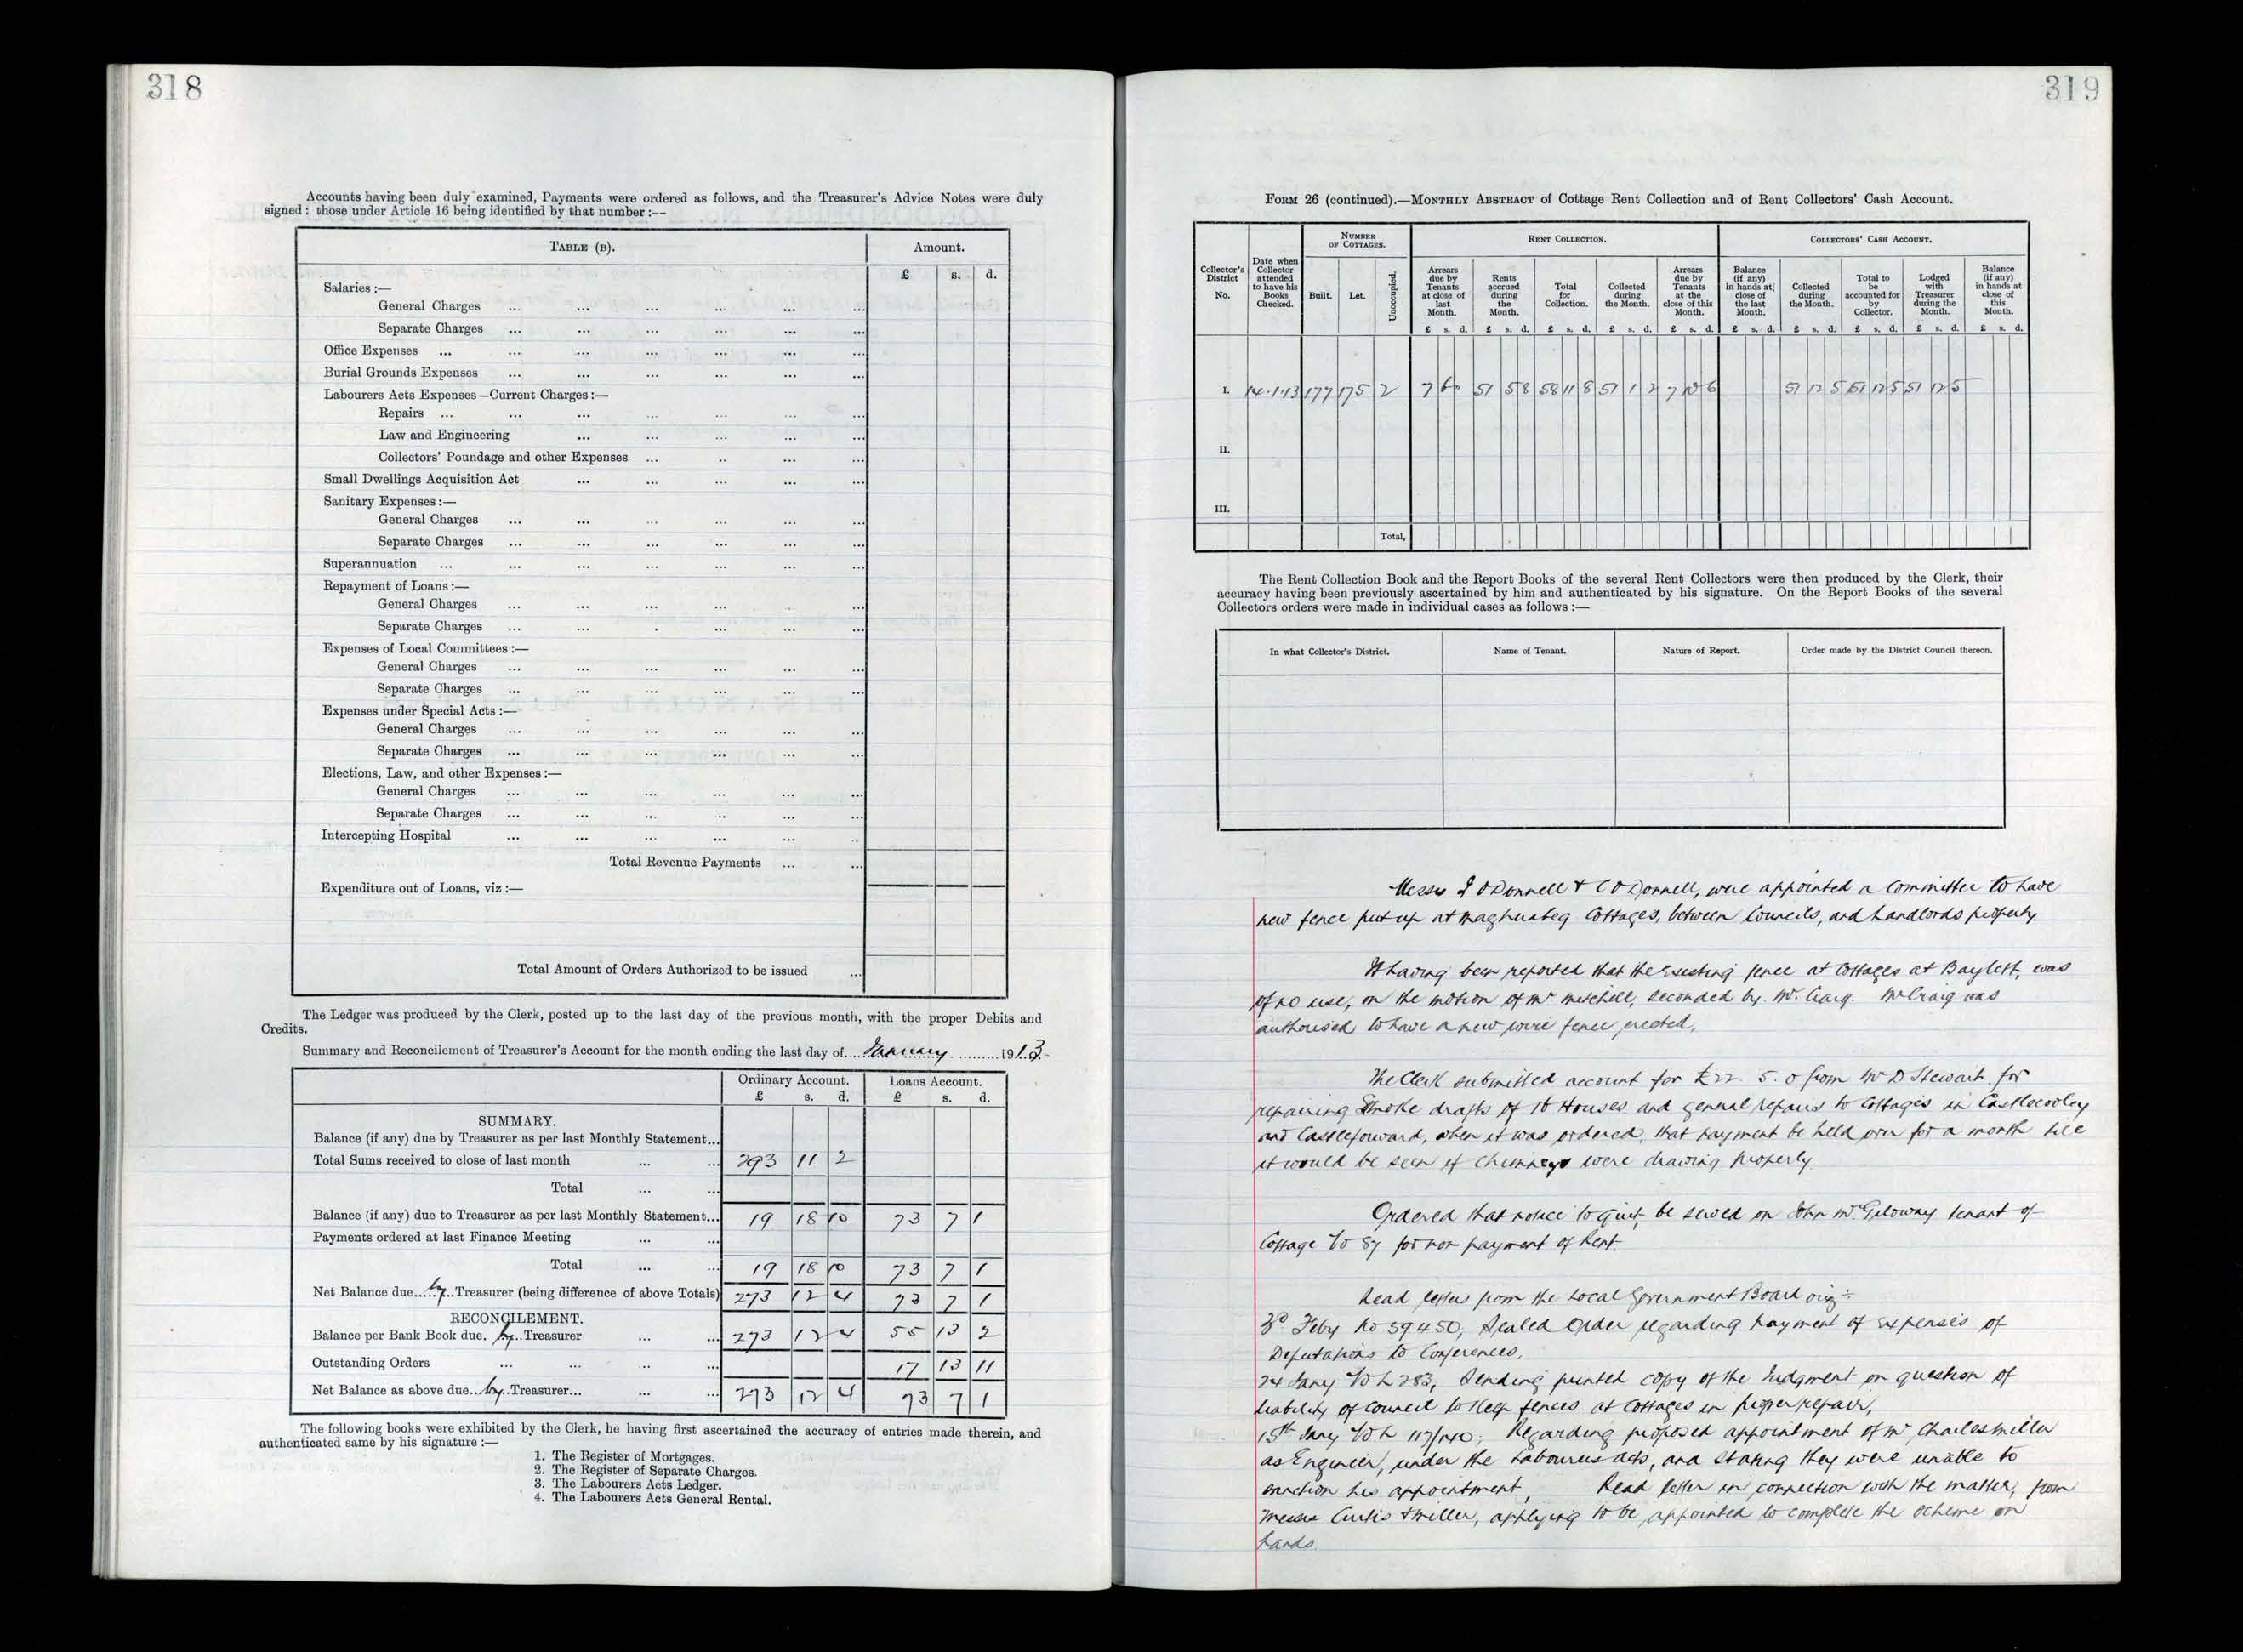 318
Accounts having been duly examined, Payments were ordered as follows, and the Treasurer's Advice Notes were duly
signed: those under Article 16 being identified by that number :--
TABLE (B). Amount.
£ s. d.
Salaries :—
General Charges ... ... ... ... ... ...
Separate Charges ... ... ... ... ... ...
Office Expenses ... ... ... ... ... ...
Burial Grounds Expenses ... ... ... ... ...
Labourers Acts Expenses—Current Charges :—
Repairs ... ... ... ... ... ...
Law and Engineering ... ... ... ... ...
Collectors' Poundage and other Expenses ... ... ... ...
Small Dwellings Acquisition Act ... ... ... ... ...
Sanitary Expenses :—
General Charges ... ... ... ... ... ...
Separate Charges ... ... ... ... ... ...
Superannuation ... ... ... ... ... ...
Repayment of Loans :—
General Charges ... ... ... ... ... ...
Separate Charges ... ... . ... ... ...
Expenses of Local Committees :—
General Charges ... ... ... ... ... ...
Separate Charges ... ... ... ... ... ...
Expenses under Special Acts :—
General Charges ... ... ... ... ... ...
Separate Charges ... ... ... ... ... ...
Elections, Law, and other Expenses :—
General Charges ... ... ... ... ... ...
Separate Charges ... ... ... ... ... ...
Intercepting Hospital ... ... ... ... ... ..
Total Revenue Payments ... ...
Expenditure out of Loans, viz :—
Total Amount of Orders Authorized to be issued ...
The Ledger was produced by the Clerk, posted up to the last day of the previous month, with the proper Debits and
Credits.
Summary and Reconcilement of Treasurer's Account for the month ending the last day of....January..........191.3.
Ordinary Account. Loans Account.
£ s. d. £ s. d.
SUMMARY.
Balance (if any) due by Treasurer as per last Monthly Statement...
Total Sums received to close of last month ... ... 293 11 2
Total ... ...
Balance (if any) due to Treasurer as per last Monthly Statement... 19 18 10 73 7 1
Payments ordered at last Finance Meeting ... ...
Total ... ... 19 18 10 73 7 1
Net Balance due.....by...Treasurer (being difference of above Totals) 273 12 4 73 7 1
RECONCILEMENT.
Balance per Bank Book due. by..Treasurer ... ... 273 12 4 55 13 2
Outstanding Orders ... ... .. ... 17 13 11
Net Balance as above due...by..Treasurer... ... ... 273 12 4 73 7 1
The following books were exhibited by the Clerk, he having first ascertained the accuracy of entries made therein, and
authenticated same by his signature :—
1. The Register of Mortgages.
2. The Register of Separate Charges.
3. The Labourers Acts Ledger.
4. The Labourers Acts General Rental.
319
FORM 26 (continued).—MONTHLY ABSTRACT of Cottage Rent Collection and of Rent Collectors' Cash Account.
Collector's District No.
Date when Collector attended to have his Books Checked.
NUMBER OF COTTAGES.
Built. Let. Unoccupied.
RENT COLLECTION.
Arrears due by Tenants at close of last Month.
Rents accrued during the Month.
Total for Collection.
Collected during the Month.
Arrears due by Tenants at the close of this Month.
COLLECTORS' CASH ACCOUNT.
Balance (if any) in hands at close of the last Month.
Collected during the Month.
Total to be accounted for by Collector.
Lodged with Treasurer during the Month.
Balance (if any) in hands at close of this Month.
£ s. d. £ s. d. £ s. d. £ s. d. £ s. d. £ s. d. £ s. d. £ s. d. £ s. d. £ s. d.
I. 14.1.13 177 175 2 7 6 0 51 5 8 58 11 8 51 1 2 7 10 6 51 12 5 51 12 5 51 12 5
II.
III.
Total,
The Rent Collection Book and the Report Books of the several Rent Collectors were then produced by the Clerk, their
accuracy having been previously ascertained by him and authenticated by his signature. On the Report Books of the several
Collectors orders were made in individual cases as follows :—
In what Collector's District. Name of Tenant. Nature of Report. Order made by the District Council thereon.
Messrs J O'Donnell & C O'Donnell, were appointed a Committee to have
new fence put up at Cottages, between Councils, and Landlords property.
It having been reported that the existing fence at Cottages at Baylett, was
of no use, on the motion of Mr Mitchell, seconded by Mr. Craig. Mr Craig was
authorised to have a new wire fence erected,
The Clerk submitted account for £22. 5. 0 from Mr D Stewart for
repairing Smoke drafts of 16 Houses and general repairs to Cottages in Castlecooley
and Castleforward, when it was ordered, that payment be held over for a month till
it would be seen if chimneys were drawing properly
Ordered that notice to quit, be served on John McGiloway tenant of
Cottage No 87 for non payment of Rent.
Read letters from the Local Government Board viz:-
3rd Feby No 59450, Sealed Order regarding payment of expenses of
Deputations to Conferences,
24 Jany No L 283, Sending printed copy of the Judgment on question of
liability of Council to keep fences at Cottages in proper repair,
15th Jany No L 117/140; Regarding proposed appointment of Mr Charles Miller
as Engineer, under the Labourers acts, and stating they were unable to
sanction his appointment, Read letter in connection with the matter, from
Messrs Curtis & Miller, applying to be appointed to complete the scheme on
hands.